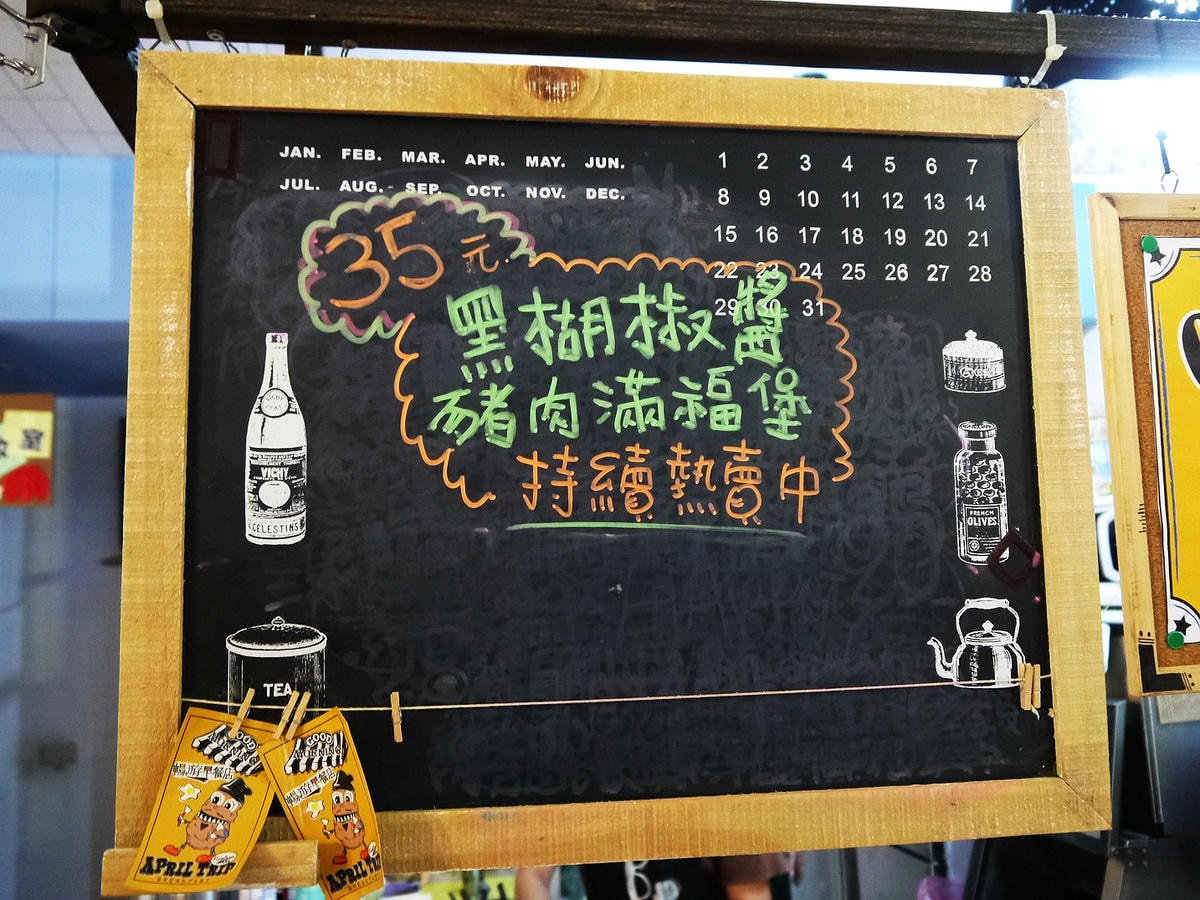 JAN. FEB. MAR. APR. MAY. JUN.
JUL. AUG. SEP. OCT. NOV. DEC.
1 2 3 4 5 6 7
8 9 10 11 12 13 14
15 16 17 18 19 20 21
22 23 24 25 26 27 28
29 30 31
35元
黑糊椒醬
豬肉滿福堡
持續熱賣中
VICHY
CELESTINS
CAKES
FRENCH
OLIVES
TEA
GOOD
MORNING
暢遊早餐店
APRIL TRIP
BREAKFAST
GOOD
MORNING
暢遊早餐店
APRIL TRIP